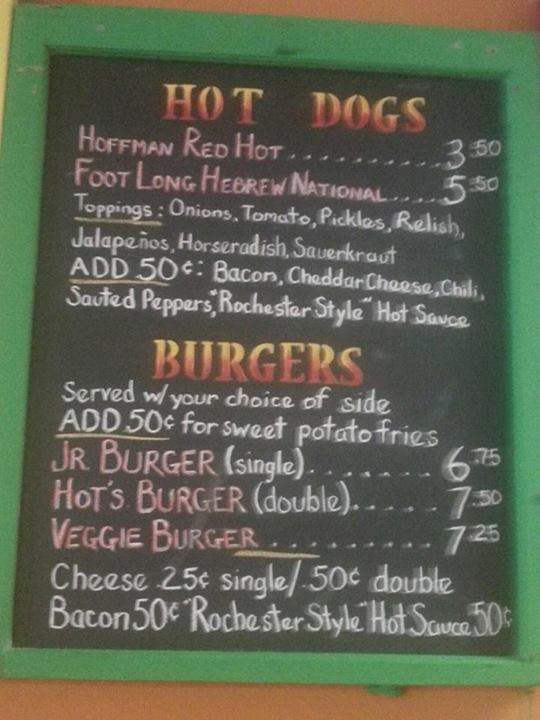 HOT DOGS
HOFFMAN RED HOT..........3.50
FOOT LONG HEBREW NATIONAL.....5.50
Toppings: Onions, Tomato, Pickles, Relish,
Jalapeños, Horseradish, Sauerkraut
ADD 50¢: Bacon, Cheddar Cheese, Chili,
Sauted Peppers, "Rochester Style" Hot Sauce
BURGERS
Served w/your choice of side
ADD 50¢ for sweet potato fries
JR BURGER (single)........6.75
HOT'S BURGER (double)......7.50
VEGGIE BURGER..........7.25
Cheese .25¢ single/.50¢ double
Bacon 50¢ "Rochester Style" Hot Sauce 50¢